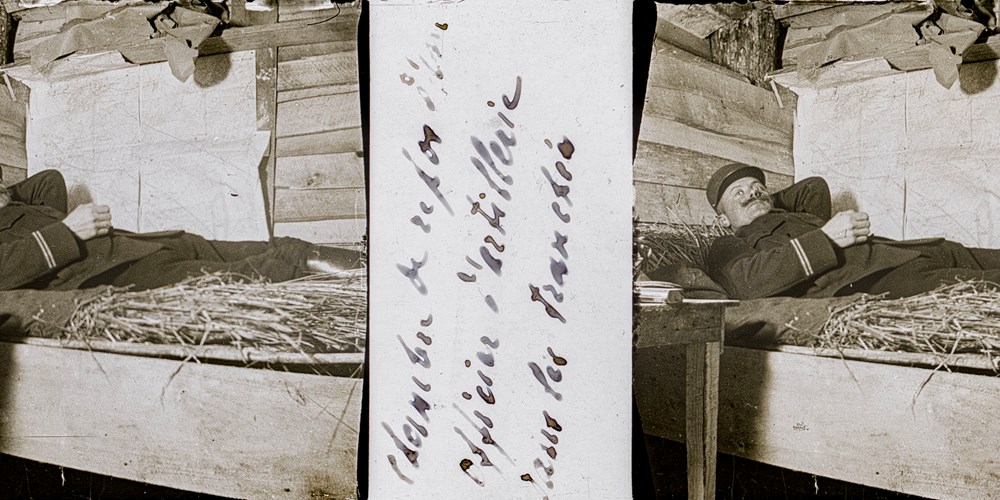 Chambre de repos d'un
Officier d'artillerie
dans les tranchées